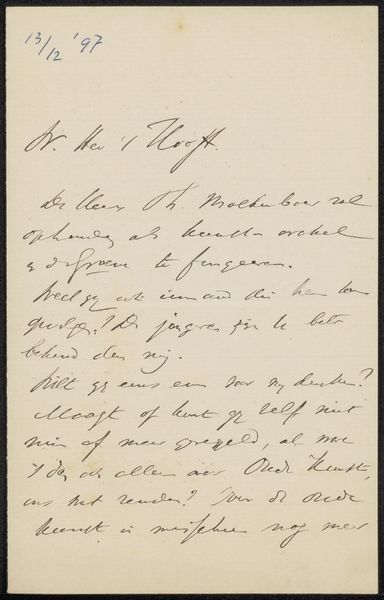 13/12 '97
W. Heer 't Hooft.
De Heer Th. Molkenboer zal
ophouden als kunst-
de Groene te fungeeren.
Weet gij ook iemand die hem kan
De jongeren zijn U beter
bekend dan mij.
Wilt gij eens een voor mij denken?
Moogt of kunt gij zelf niet
min of meer geregeld, al ware
't dan ook alleen over Oude Kunst,
ons iets zenden? Over de oude
kunst is misschien nog meer